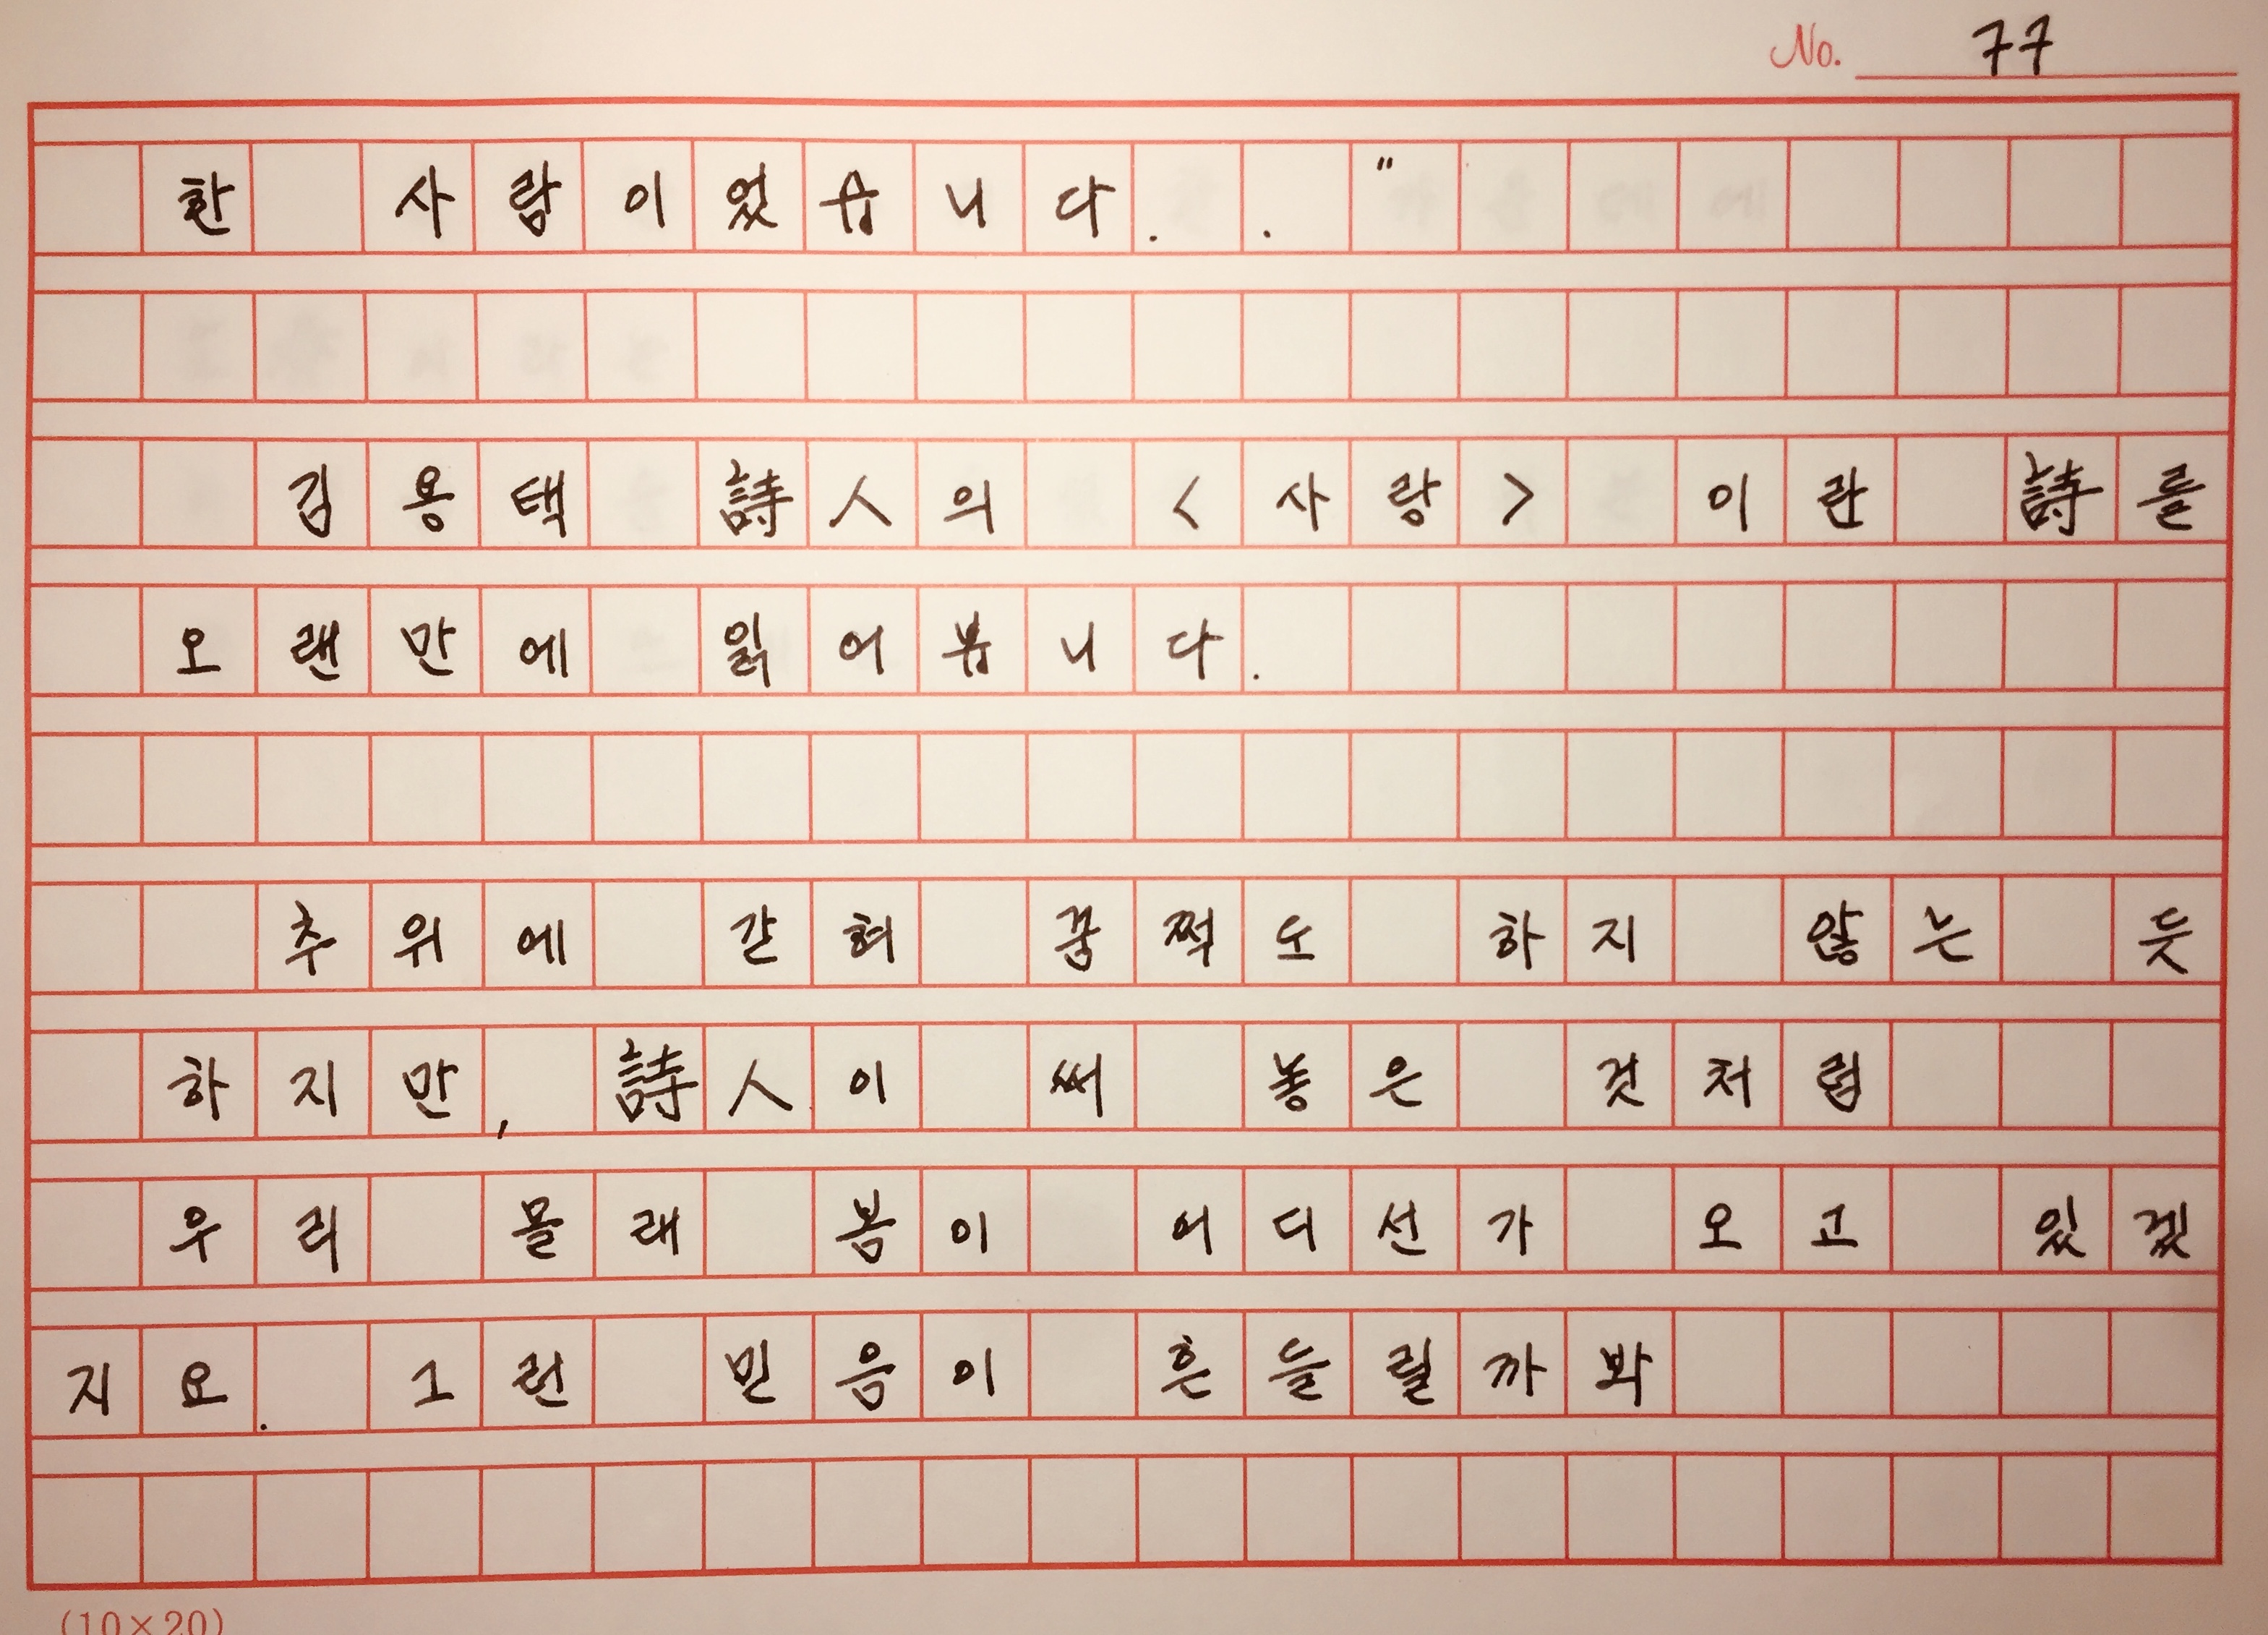 No. 77
한 사람이었습니다. . "
김용택 詩人의 <사랑> 이란 詩를
오랜만에 읽어봅니다.
추위에 갇혀 꿈쩍도 하지 않는 듯
하지만, 詩人이 써 놓은 것처럼
우리 몰래 봄이 어디선가 오고 있겠
지요. 그런 믿음이 흔들릴까봐
(10×20)